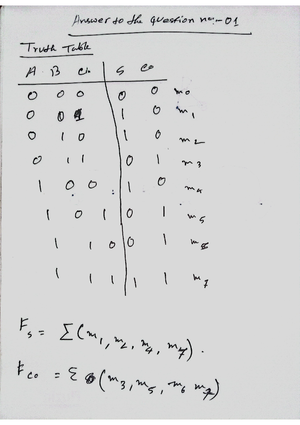 Answer to the question no:-01
Truth Table
A B Cin S Co
0 0 0 0 0 m0
0 0 1 1 0 m1
0 1 0 1 0 m2
0 1 1 0 1 m3
1 0 0 1 0 m4
1 0 1 0 1 m5
1 1 0 0 1 m6
1 1 1 1 1 m7
Fs = Σ(m1, m2, m4, m7).
Fco = Σ(m3, m5, m6 m7)